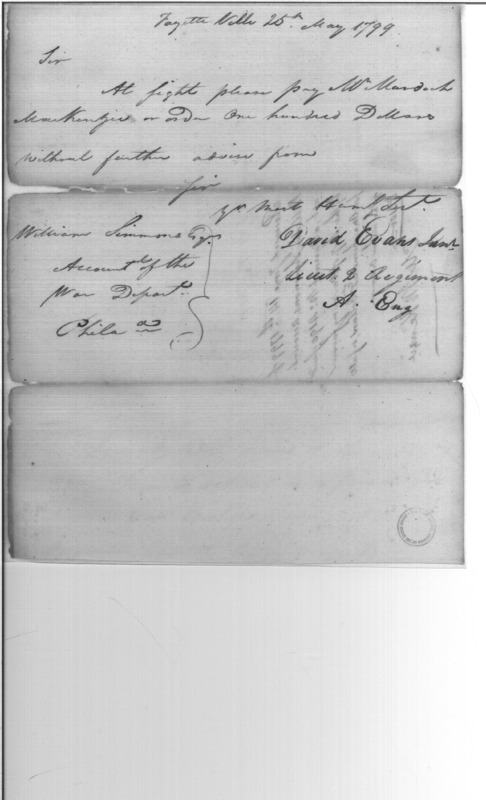 Fayette Ville 25th May 1799
Sir
At sight please pay Mr Murdoch
MacKenzie or order One hundred Dollars
without further advice from
Sir
yr Most Huml Sert.
William Simmons Esqr
David Evans Junr
Accountt of the
Lieut 2 Regiment
War Departt.
A. Eng
Phila